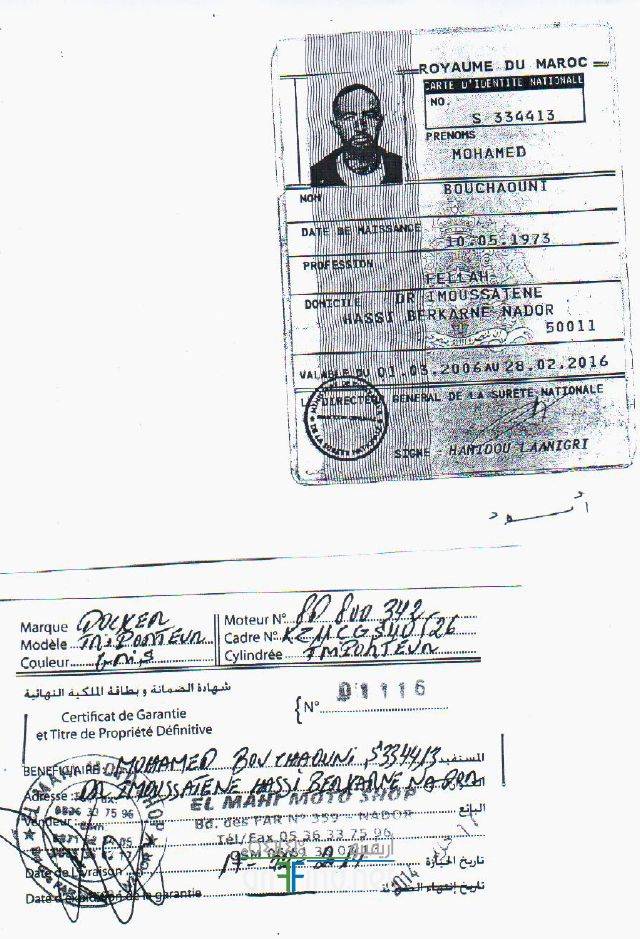 ROYAUME DU MAROC
CARTE D'IDENTITE NATIONALE
NO.
S 334413
PRENOMS
MOHAMED
NOM
BOUCHAOUNI
DATE DE NAISSANCE 10.05.1973
PROFESSION
FELLAH
DOMICILE DR IMOUSSATENE
HASSI BERKARNE NADOR
50011
VALABLE DU 01.03.2006 AU 28.02.2016
LE DIRECTEUR GENERAL DE LA SURETE NATIONALE
SIGNE - HAMIDOU LAANIGRI
Marque DOCKER
Modèle TRIPORTEUR
Couleur GRIS
Moteur N°
Cadre N°
Cylindrée TRIPORTEUR
شهادة الضمانة و بطاقة الملكية النهائية
Certificat de Garantie
et Titre de Propriété Définitive
N° 01116
BENEFICIAIRE: MOHAMED BOUCHAOUNI S334413 المستفيد
Adresse: DR IMOUSSATENE HASSI BERKARNE NADOR
EL MAHI MOTO SHOP
Vendeur: Bd. des FAR N° 359 - NADOR البائع
Tél/Fax 05 36 33 75 96
Date de Livraison تاريخ الحيازة
Date d'expiration de la garantie تاريخ إنتهاء الضمانة
2014